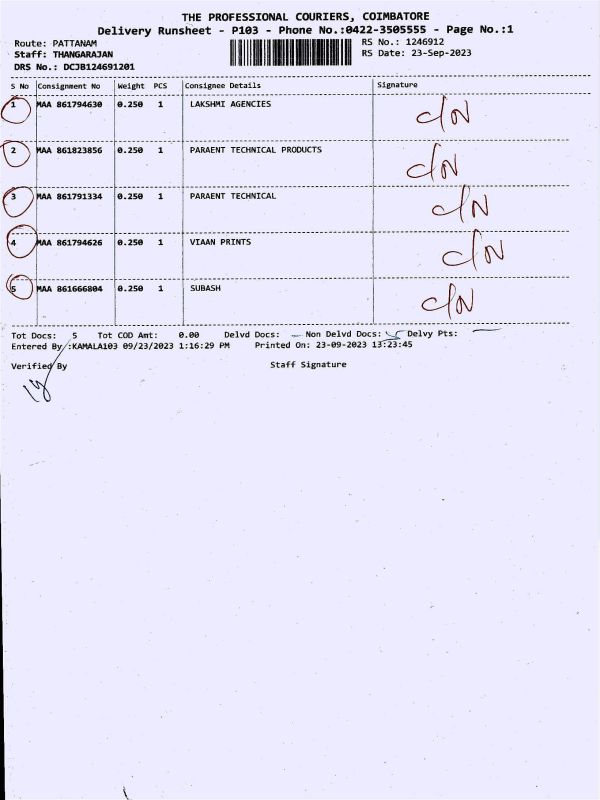 THE PROFESSIONAL COURIERS, COIMBATORE
Delivery Runsheet - P103 - Phone No.:0422-3505555 - Page No.:1
Route: PATTANAM RS No.: 1246912
Staff: THANGARAJAN RS Date: 23-Sep-2023
DRS No.: DCJB124691201
S No Consignment No Weight PCS Consignee Details Signature
1 MAA 861794630 0.250 1 LAKSHMI AGENCIES C/N
2 MAA 861823856 0.250 1 PARAENT TECHNICAL PRODUCTS C/N
3 MAA 861791334 0.250 1 PARAENT TECHNICAL C/N
4 MAA 861794626 0.250 1 VIAAN PRINTS C/N
5 MAA 861666804 0.250 1 SUBASH C/N
Tot Docs: 5 Tot COD Amt: 0.00 Delvd Docs: — Non Delvd Docs: Delvy Pts: —
Entered By :KAMALA103 09/23/2023 1:16:29 PM Printed On: 23-09-2023 13:23:45
Verified By Staff Signature